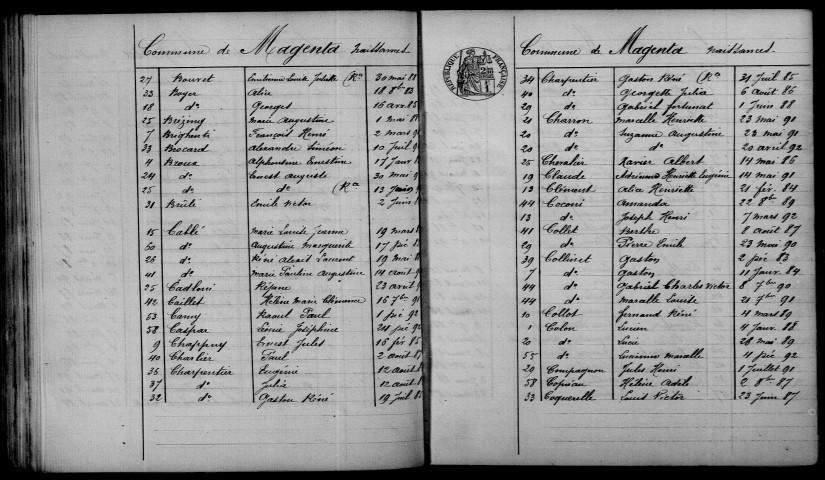 Commune de Magenta naissances
27 Bouret Louise Juliette (Ron) 30 mai 88
33 Boyer Alice 18 8bre 83
18 do Georges 16 avr. 85
25 Bréziny Marie Augustine 1 mai
7 Brighenti François Henri 2 mars
33 Brocard Alexandre Siméon 10 Juil
4 Broux Alphonsine Ernestine 17 Janr
24 do Ernest Auguste 30 mai
25 do do (Ron) 13
31 Brûlé Emile Victor 2 Juin
15 Cablé Marie Louise Jeanne 19 mars
50 do Augustine Marguerite 17 fév
26 do Réné Alexis Laurent 19 mai
41 do Marie Pauline Augustine 14 août
25 Réjane 23 avril
42 Caillet Hélène Marie Clémence 16 7bre
53 Camy Raoul Paul 1 fév 92
58 Caspar Louise Joséphine 24 fév 92
9 Chappuy Ernest Jules 16 fév 85
40 Charlier Paul 2 août
36 Charpentier Eugénie 12 août
37 do Julia 12 août
32 do Gaston Réné 19 Juil 85
RÉPUBLIQUE FRANÇAISE
Commune de Magenta naissances
34 Charpentier Gaston Réné (Ron) 31 Juil 85
40 do Georgette Julia 6 août 86
29 do Gabriel fortunat 1 Juin 88
21 Charron Marcelle Henriette 23 mai 91
20 do Suzanne Augustine 23 mai 91
20 do do 20 avril 92
25 Chevalier Xavier Albert 14 mai 86
19 Claude Adrienne Henriette Eugénie 14 mai 91
13 Clément Alice Henriette 21 fév. 84
44 Coconi Amanda 22 8bre 89
13 do Joseph Henri 7 mars 92
41 Collet Berthe 8 août 87
29 do Pierre Emile 23 mai 90
39 Collinet Gaston 2 fév 83
7 do Gaston 11 Janr. 84
44 do Gabriel Charles Victor 8 7bre 90
44 do Marcelle Louise 21 7bre 91
10 Collot fernand Réné 4 mars 89
1 Colon Lucien 4 Janr. 88
20 do Lucie 28 mai 89
55 do Lucienne Marcelle 4 fév 92
29 Compagnon Jules Henri 1 Juillet 91
58 Copieau Hélène Adèle 2 8bre 87
33 Coquerelle Louis Victor 23 Juin 87